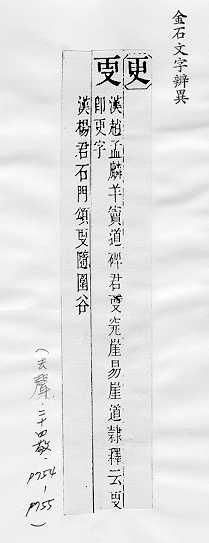 金石文字辨異
更
㪅漢趙孟麟羊竇道碑君㪅完崖易崖道隸釋云㪅
即更字
漢楊君石門頌㪅隨圍谷
(去聲.二十四敬.P754-P755)